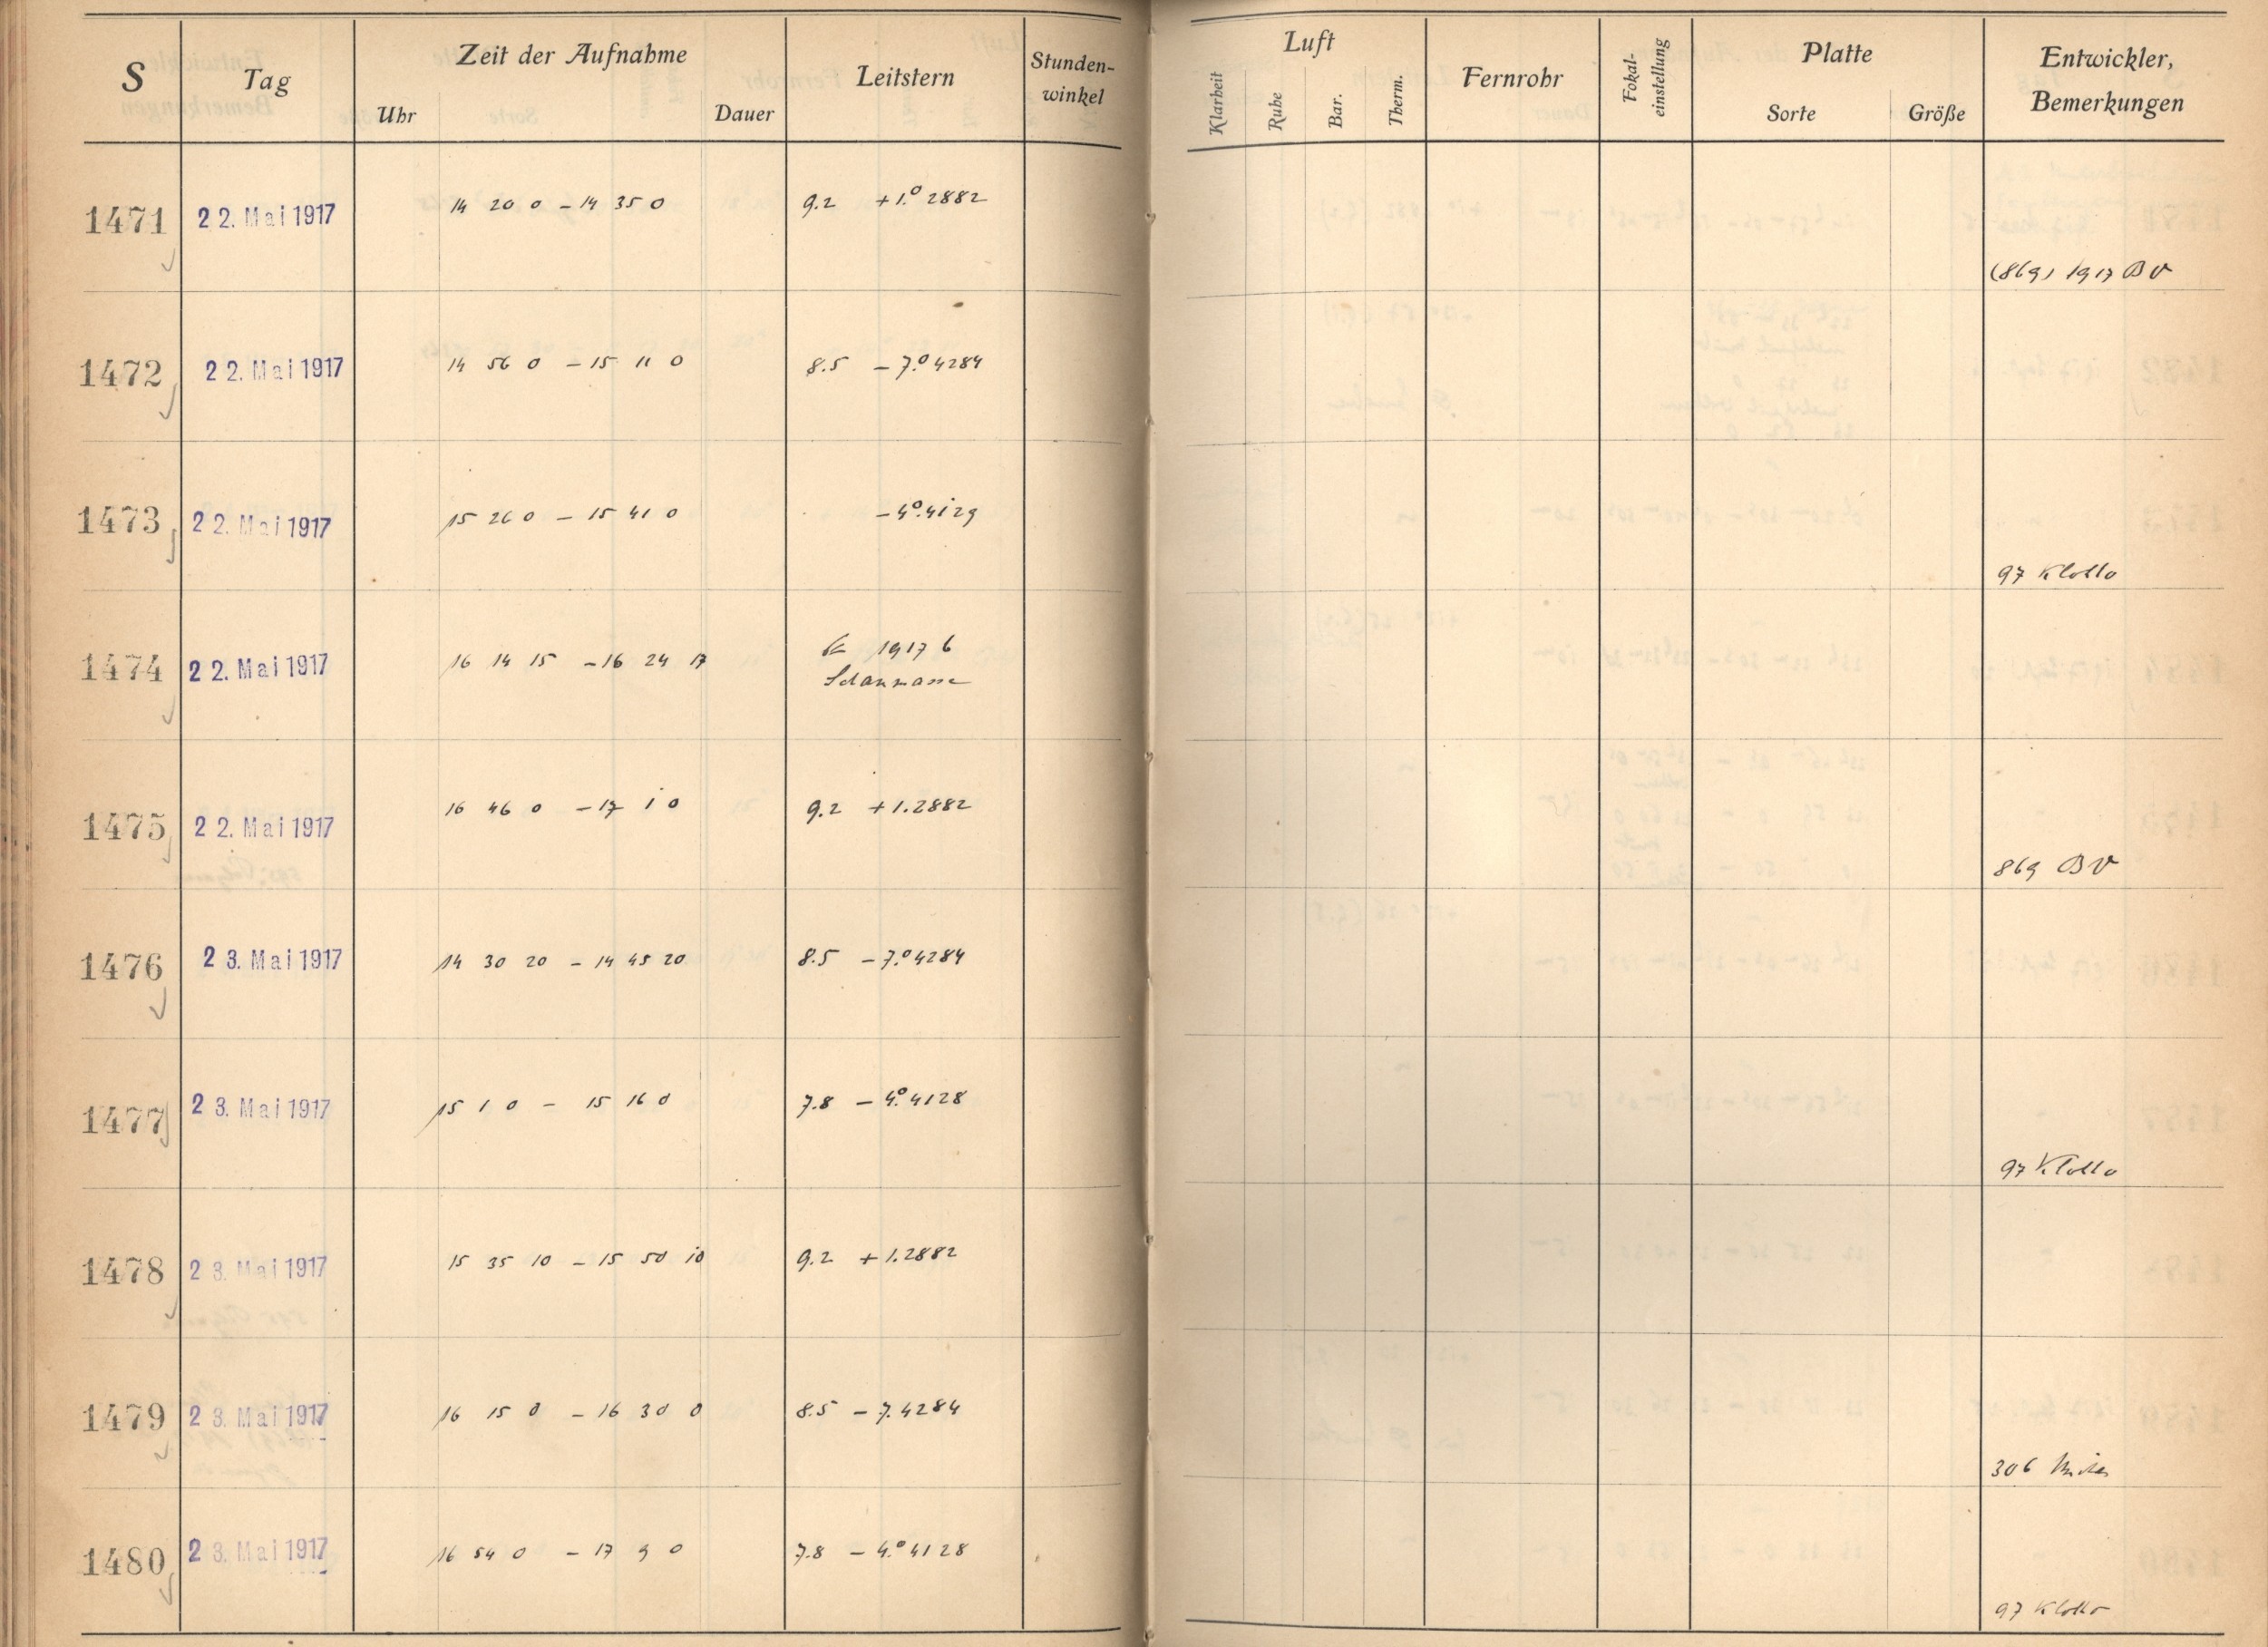 S Tag Zeit der Aufnahme Leitstern Stunden-winkel Luft Fernrohr Fokal-einstellung Platte Entwickler, Bemerkungen
Uhr Dauer Klarheit Ruhe Bar. Therm. Sorte Größe
1471 22. Mai 1917 14 20 0 – 14 35 0 9.2 +1.° 2882
(869) 1917 BV
1472 22. Mai 1917 14 56 0 – 15 11 0 8.5 –7.° 4284
1473 22. Mai 1917 15 26 0 – 15 41 0 –4.° 4129
97 Klotho
1474 22. Mai 1917 16 14 15 – 16 24 17 1917 b
Schaumasse
1475 22. Mai 1917 16 46 0 – 17 1 0 9.2 +1.2882
869 BV
1476 23. Mai 1917 14 30 20 – 14 45 20 8.5 –7.° 4284
1477 23. Mai 1917 15 1 0 – 15 16 0 7.8 –4.° 4128
97 Klotho
1478 23. Mai 1917 15 35 10 – 15 50 10 9.2 +1.2882
1479 23. Mai 1917 16 15 0 – 16 30 0 8.5 –7.4284
306
1480 23. Mai 1917 16 54 0 – 17 9 0 7.8 –4.° 4128
97 Klotho